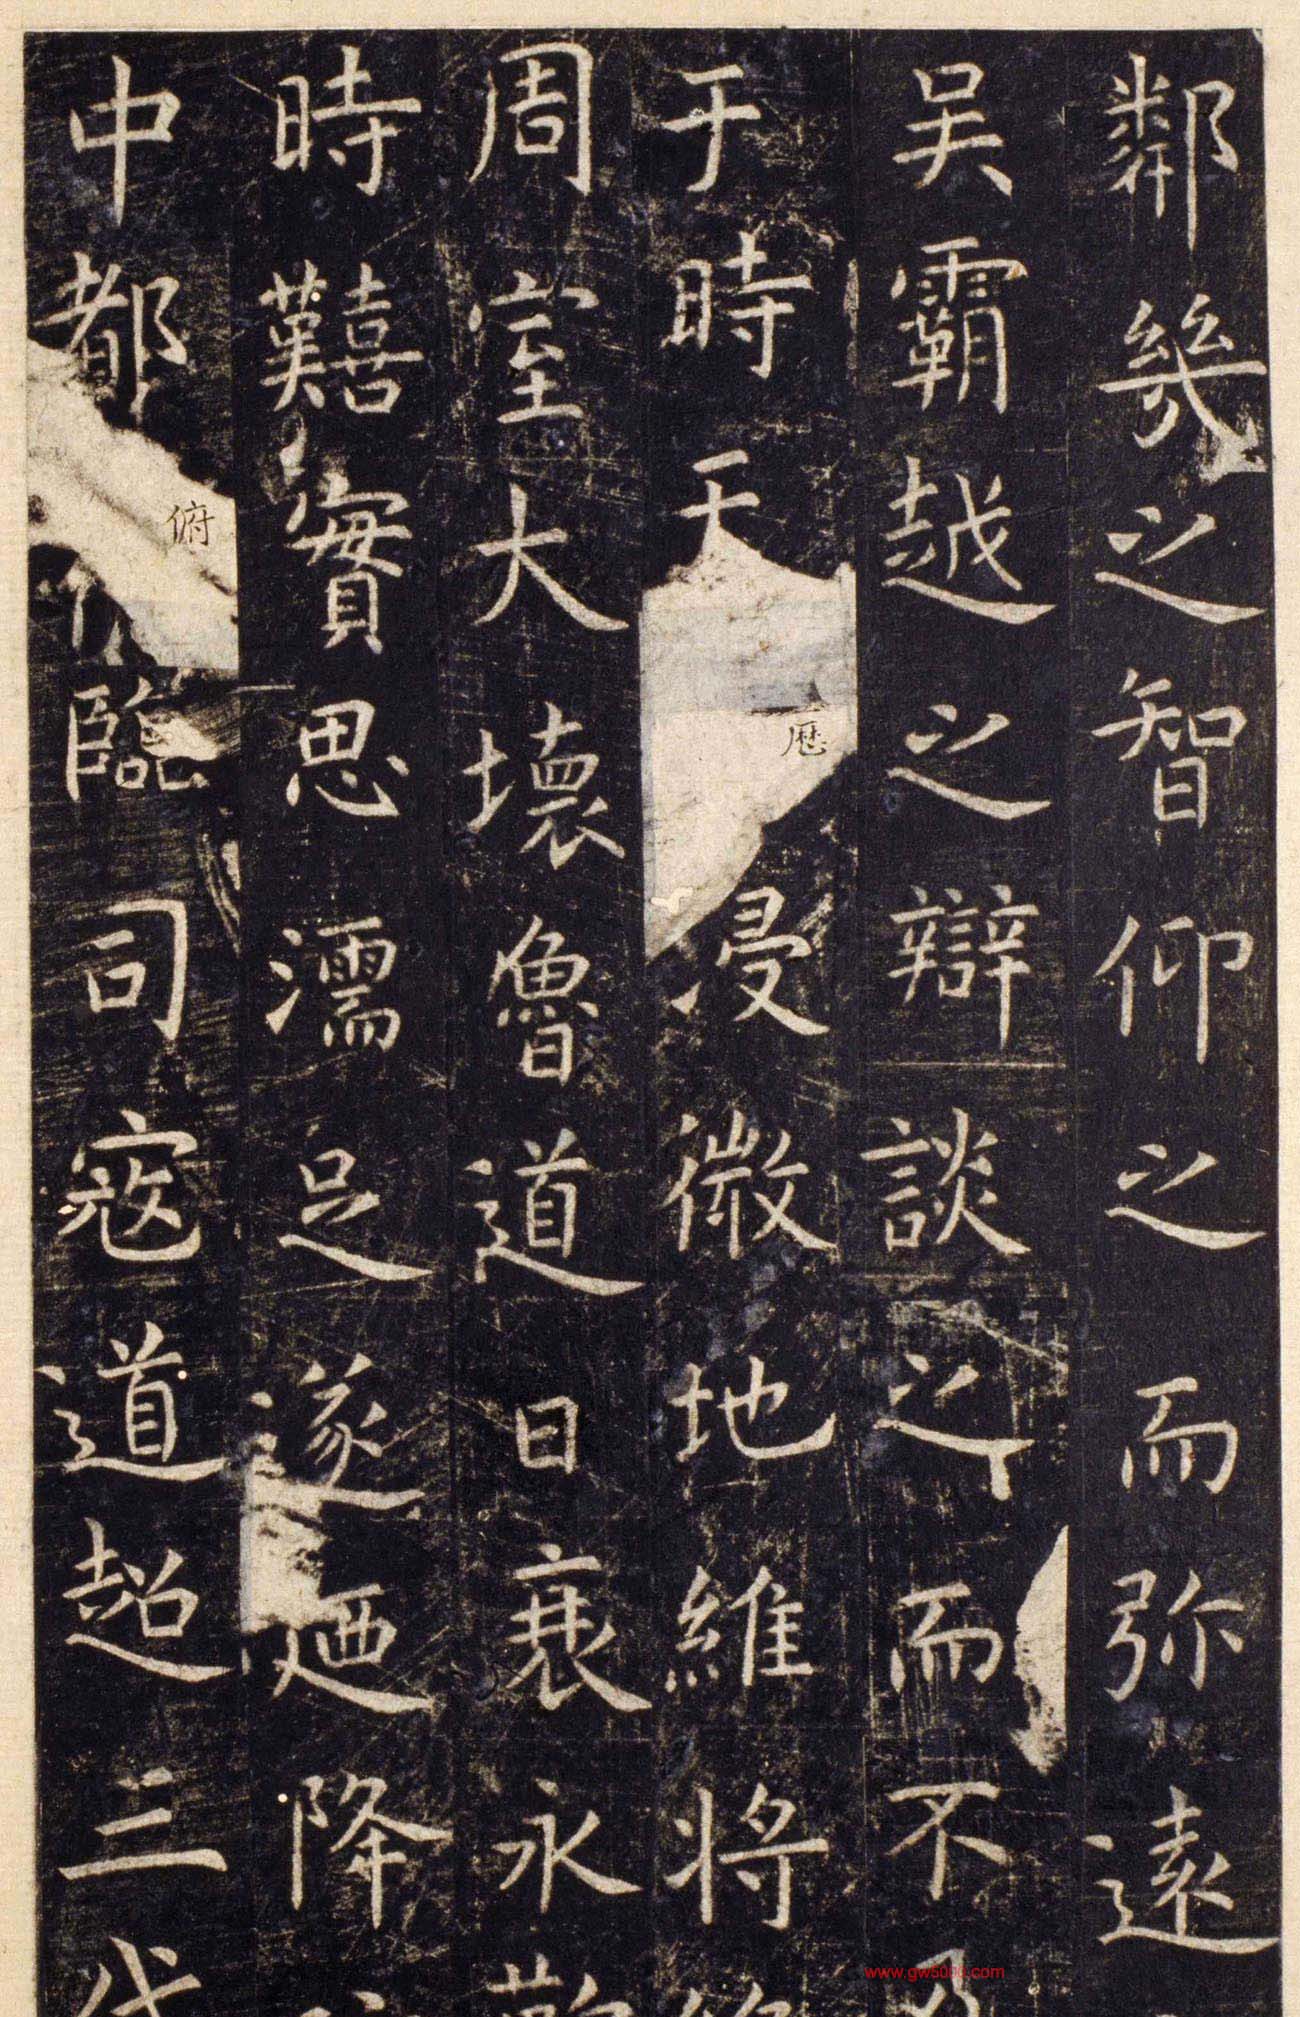 鄰幾之智仰之而弥遠
吳霸越之辯談之而不
于時天曆浸微地維將
周室大壞魯道日衰永
時囏實思濡足遂迺降
中都俯臨司寇道超三代
www.gw5000.com